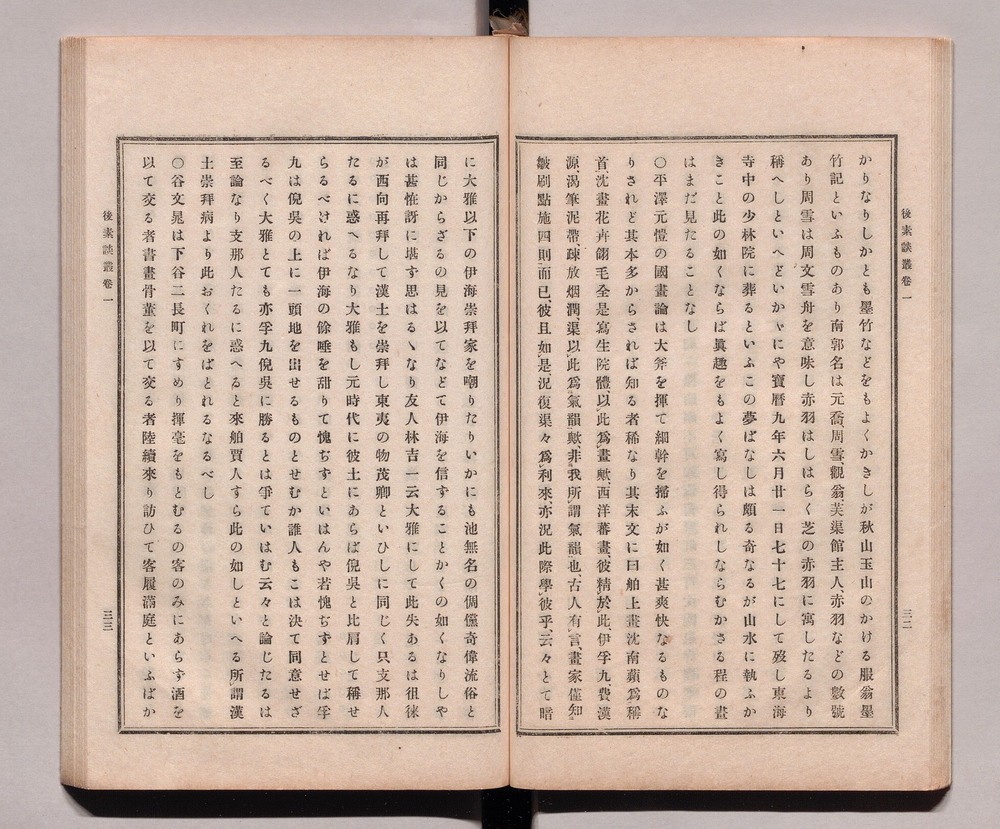 後素談叢卷一
三二
かりなりしかとも墨竹などをもよくかきしが秋山玉山のかける服翁墨
竹記といふものあり南郭名は元喬、周雪、觀翁、芙渠館主人、赤羽などの數號
あり周雪は周文雪舟を意味し赤羽はしはらく芝の赤羽に寓したるより
稱へしといへどいかゞにや寶曆九年六月廿一日七十七にして歿し東海
寺中の少林院に葬るといふこの夢ばなしは頗る奇なるが山水に執ふか
きこと此の如くならば眞趣をもよく寫し得られしならむかさる程の畫
はまだ見たることなし
〇平澤元愷の國畫論は大斧を揮て細幹を掃ふが如く甚爽快なるものな
りされど其本多からされば知る者稀なり其末文に曰舶上畫沈南蘋爲稱
首沈畫花卉翎毛全是寫生院體、以此爲畫歟、西洋蕃畫、彼精於此、伊孚九、費漢
源、渴筆泥帶、疎放烟潤、渠以此爲氣韻歟、非我所謂氣韻也、古人有言、畫家僅知
皴刷點施四則而已、彼且如是、況復渠々爲利來、亦況此際學彼乎、云々とて暗
に大雅以下の伊海崇拜家を嘲りたりいかにも池無名の倜儻奇偉流俗と
同じからざるの見を以てなどて伊海を信することかくの如くなりしや
は甚恠訝に堪す思はるゝなり友人林吉一云大雅にして此失あるは徂徠
が西向再拜して漢土を崇拜し東夷の物茂卿といひしに同じく只支那人
たるに惑へるなり大雅もし元時代に彼土にあらば倪吳と比肩して稱せ
らるべければ伊海の餘唾を甜りて愧ぢすといはんや若愧ぢすとせば孚
九は倪吳の上に一頭地を出せるものとせむか誰人もこは決て同意せざ
るべく大雅とても亦孚九倪吳に勝るとは爭ていはむ云々と論じたるは
至論なり支那人たるに惑へると來舶賈人すら此の如しといへる所謂漢
土崇拜病より此おくれをばとれるなるべし
〇谷文晁は下谷二長町にすめり揮毫をもとむるの客のみにあらず酒を
以て交る者書畫骨董を以て交る者陸續來り訪ひて客履滿庭といふばか
後素談叢卷一
三三